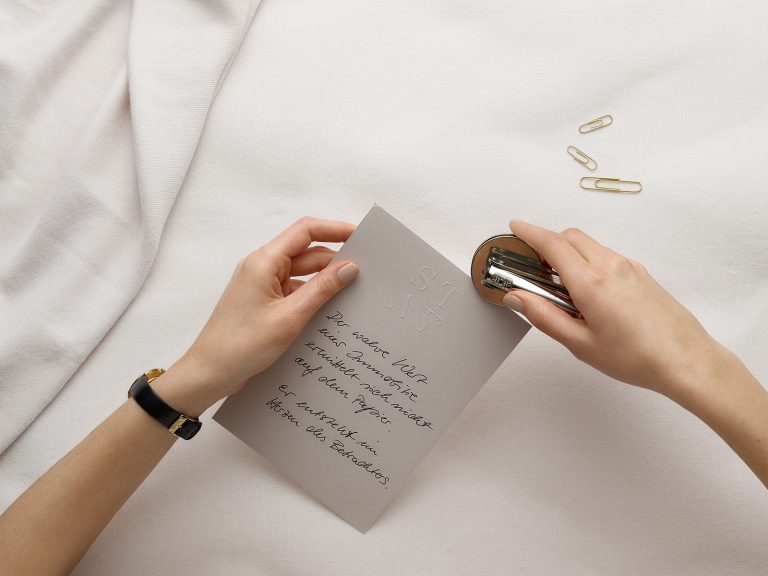 ST
Der wahre Wert
einer Immobilie
ermittelt sich nicht
auf dem Papier.
Er entsteht im
Herzen des Betrachters.